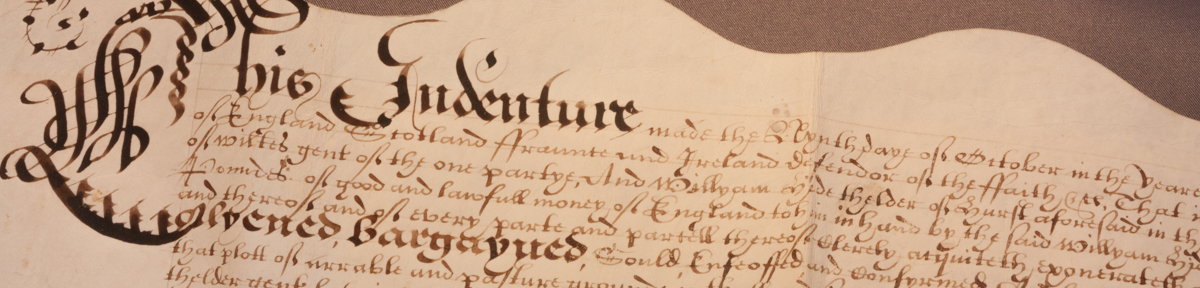 This Indenture made the Nynth daye of October in the Yeare
of England Scotland ffraunce and Ireland defendor of the ffaith &c. That
of wiltes gent of the one partye, And Willyam Hyde thelder of Hurst aforesaid in th
Poundes of good and lawfull money of England to him in hand by the said Willyam Hy
and thereof and of every parte and parcell thereof Clerely acquiteth exonerateth
gyvened, bargayned, Sould, Enfeoffed, and Confyrmed
that plott of arrable and pasture ground
thelder gent